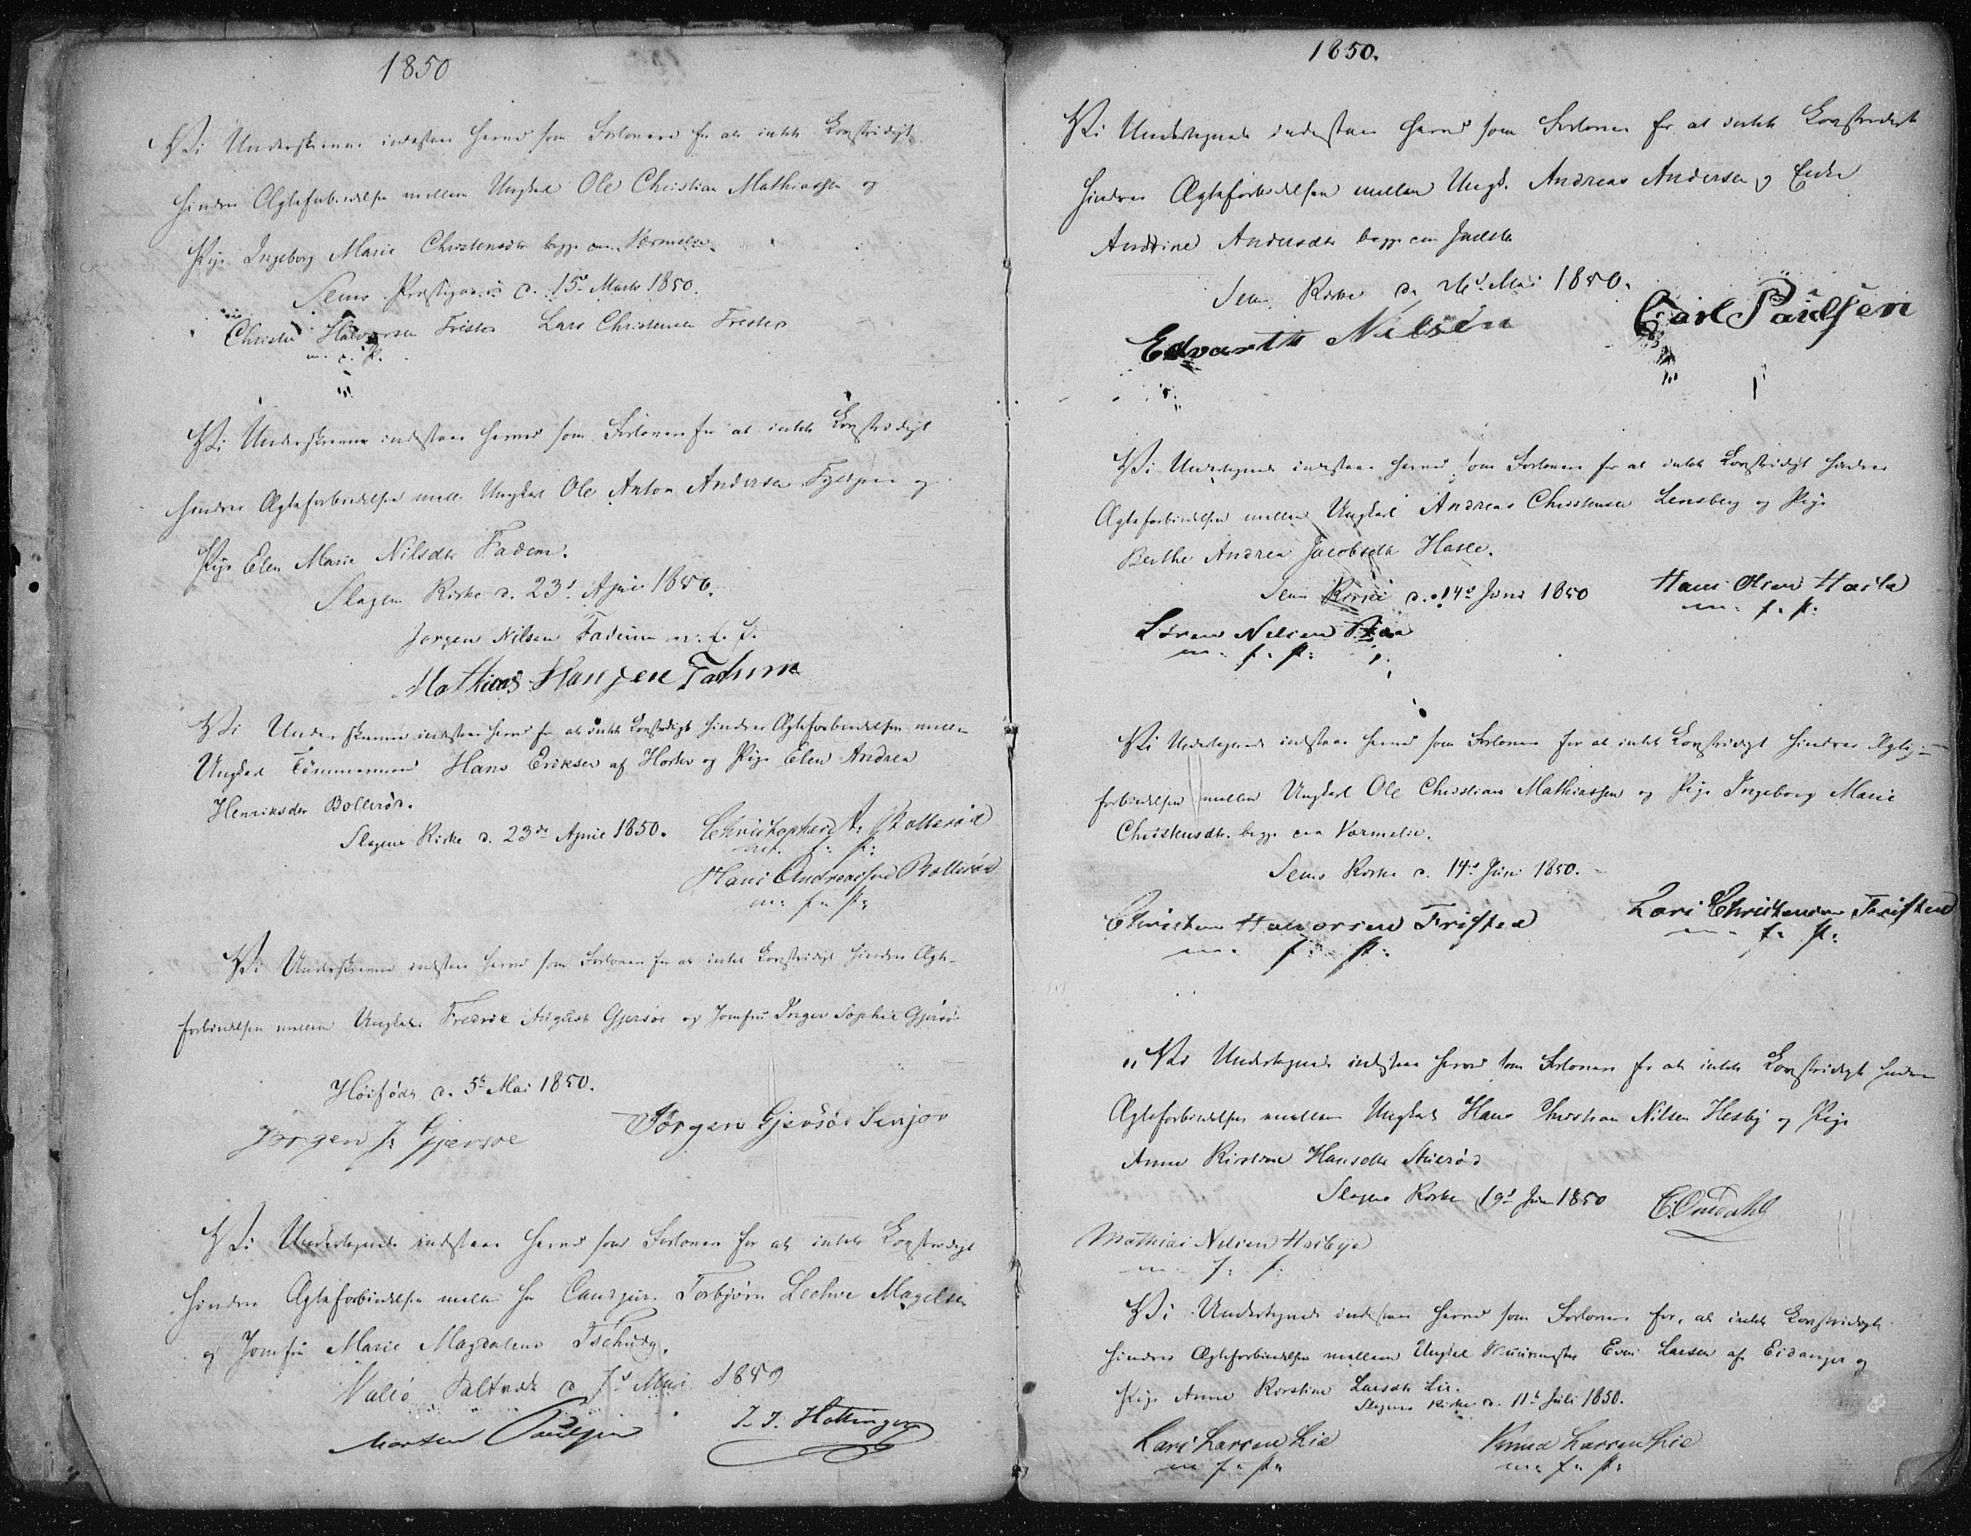 1850
Vi Underskrevne indestaae herved som Forlovere for at intet Lovstridigt
hindrer Ægteforbindelsen mellem Ungkarl Ole Christian Mathiassen og
Pige Ingeborg Marie Christensdtr begge om Varmelie.
Sems Præstegaard d. 15d Marts 1850.
Christen Halvorsen Fristed Lars Christensen Fristed
m. f. P.
Vi Underskrevne indestaae herved som Forlovere for at intet Lovstridigt
hindrer Ægteforbindelsen mell. Ungkarl Ole Anton Andersen og
Pige Elen Marie Nilsdtr Fadum.
Slagen Kirke d. 23d April 1850.
Jørgen Nilsen Fadum m. f. P.
Mathias Hansen Fadum
Vi Underskrevne indestaae herved for at intet Lovstridigt hindrer Ægteforbindelsen mellem
Ungkarl Tømmermand Hans Eriksen af Horten og Pige Elen Andrea
Henriksdtr Bollerød.
Slagens Kirke d. 23de April 1850. Christopher A. Bollerød
m. f. P.
Hans Andreassen Bollerød
m. f. P.
Vi Underskrevne indestaae herved som Forlovere for at intet Lovstridigt hindrer Ægte-
forbindelsen mellem Ungkarl Fredrik August Gjersøe og Jomfru Inger Sophie Gjersøe
d. 5te Mai 1850.
Jørgen J. Gjersøe Jørgen Gjersøe Senjor
Vi Undertegnede indestaae herved som Forlovere for at intet Lovstridigt
hindrer Ægteforbindelsen mellem Hr Candjur. Torbjørn Lechve Magelsen
og Jomfru Marie Magdalena Tschudy.
Valø Saltværk d 7d Mai 1850
Morten Paulsen J. J. Hottinger
1850.
Vi Undertegnede indestaae herved som Forlovere for at intet Lovstridigt
hindrer Ægteforbindelsen mellem Ungk. Andreas Andersen og Enke
Andrine Andersdtr begge om
Sems Kirke d. Mai 1850.
Edvarth Nilsen Carl Paulsen
Vi Undertegnede indestaae herved som Forlovere for at intet Lovstridigt hindrer
Ægteforbindelsen mellem Ungkarl Andreas Christensen Lensberg og Pige
Berthe Andrea Jacobsdtr Hasle.
Sems Kirke d. 14d Juni 1850 Hans Olsen Hasle
m. f. P.
Søren Nilsen
m. f. P.
Vi Undertegnede indestaae herved som Forlovere for at intet Lovstridigt hindrer Ægte-
forbindelsen mellem Ungkarl Ole Christian Mathiassen og Pige Ingeborg Marie
Christensdtr. begge om Varmelie.
Sems Kirke d. 14d Juni 1850.
Christen Halvorsen Fristed Lars Christensen Fristed
m. f. P. m. f. P.
Vi Undertegnede indestaae herved som Forlovere for at intet Lovstridigt hindrer
Ægteforbindelsen mellem Ungkarl Hans Christian Nilsen Hesby og Pige
Anne Kirstine Hansdtr
Slagens Kirke 19d Juni 1850 C. Omdahl
Mathias Nilsen Hesbye
m. f. P.
Vi Undertegnede indestaae herved som Forlovere for, at intet Lovstridigt
hindrer Ægteforbindelsen mellem Ungkarl Muurmester Even Larsen af Eidanger og
Pige Anne Kirstine Larsdtr Lie.
Slagens Kirke d. 11te Juli 1850.
Lars Larsen Lie Knud Larsen Lie
m. f. P. m. f. P.